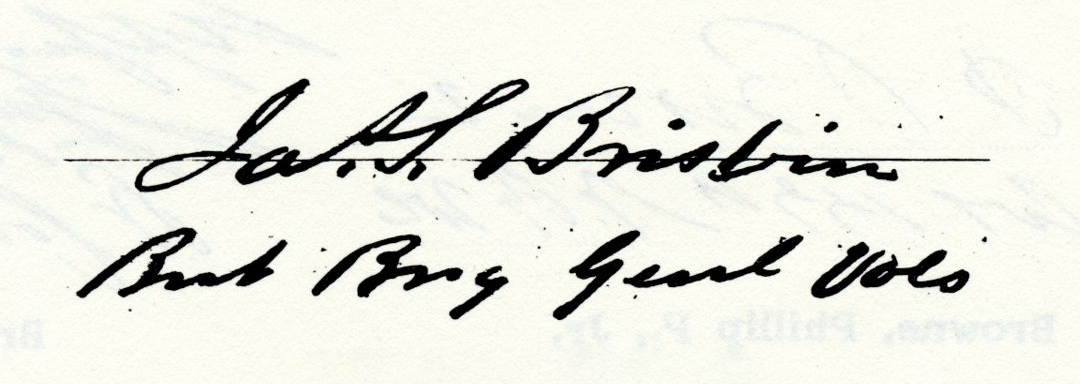 Jas. S. Brisbin
Bvt Brig Genl Vols
Browne, Phillip F., Jr.